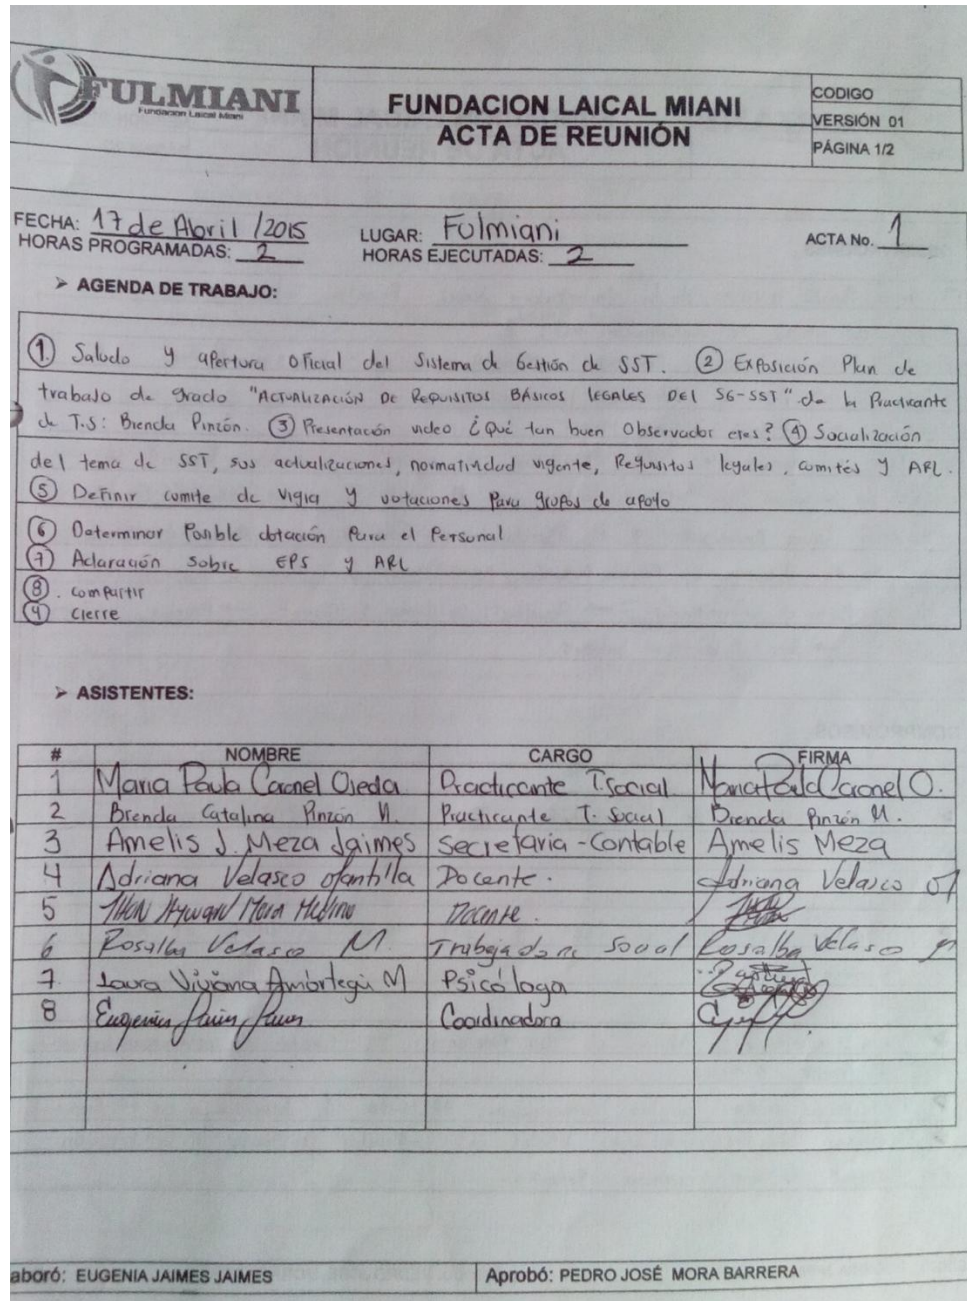 FULMIANI
Fundacion Laical Miani
FUNDACION LAICAL MIANI
ACTA DE REUNIÓN
CODIGO
VERSIÓN 01
PÁGINA 1/2
FECHA: 17 de Abril /2015 LUGAR: Fulmiani ACTA No. 1
HORAS PROGRAMADAS: 2 HORAS EJECUTADAS: 2
➢ AGENDA DE TRABAJO:
① Saludo y apertura oficial del Sistema de Gestión de SST. ② Exposición Plan de
trabajo de grado "ACTUALIZACIÓN DE REQUISITOS BÁSICOS LEGALES DEL SG-SST" de la Practicante
de T.S: Brenda Pinzón. ③ Presentación video ¿Qué tan buen Observador eres? ④ Socialización
del tema de SST, sus actualizaciones, normatividad vigente, Requisitos legales, comités y ARL.
⑤ Definir comite de Vigia y votaciones para grupos de apoyo
⑥ Determinar Posible dotación Para el Personal
⑦ Aclaración sobre EPS y ARL
⑧. compartir
⑨ cierre
➢ ASISTENTES:
# NOMBRE CARGO FIRMA
1 Maria Paula Coronel Ojeda Practicante T.Social Maria Paula Coronel O.
2 Brenda Catalina Pinzón M. Practicante T. Social Brenda Pinzón M.
3 Amelis J. Meza Jaimes Secretaria - Contable Amelis Meza
4 Adriana Velasco Mantilla Docente. Adriana Velasco
5 Mora Docente.
6 Rosalba Velasco M. Trabajadora Social Rosalba Velasco
7. Laura Viviana Amortegui M Psicóloga
8 Eugenia Coordinadora
aboró: EUGENIA JAIMES JAIMES Aprobó: PEDRO JOSÉ MORA BARRERA